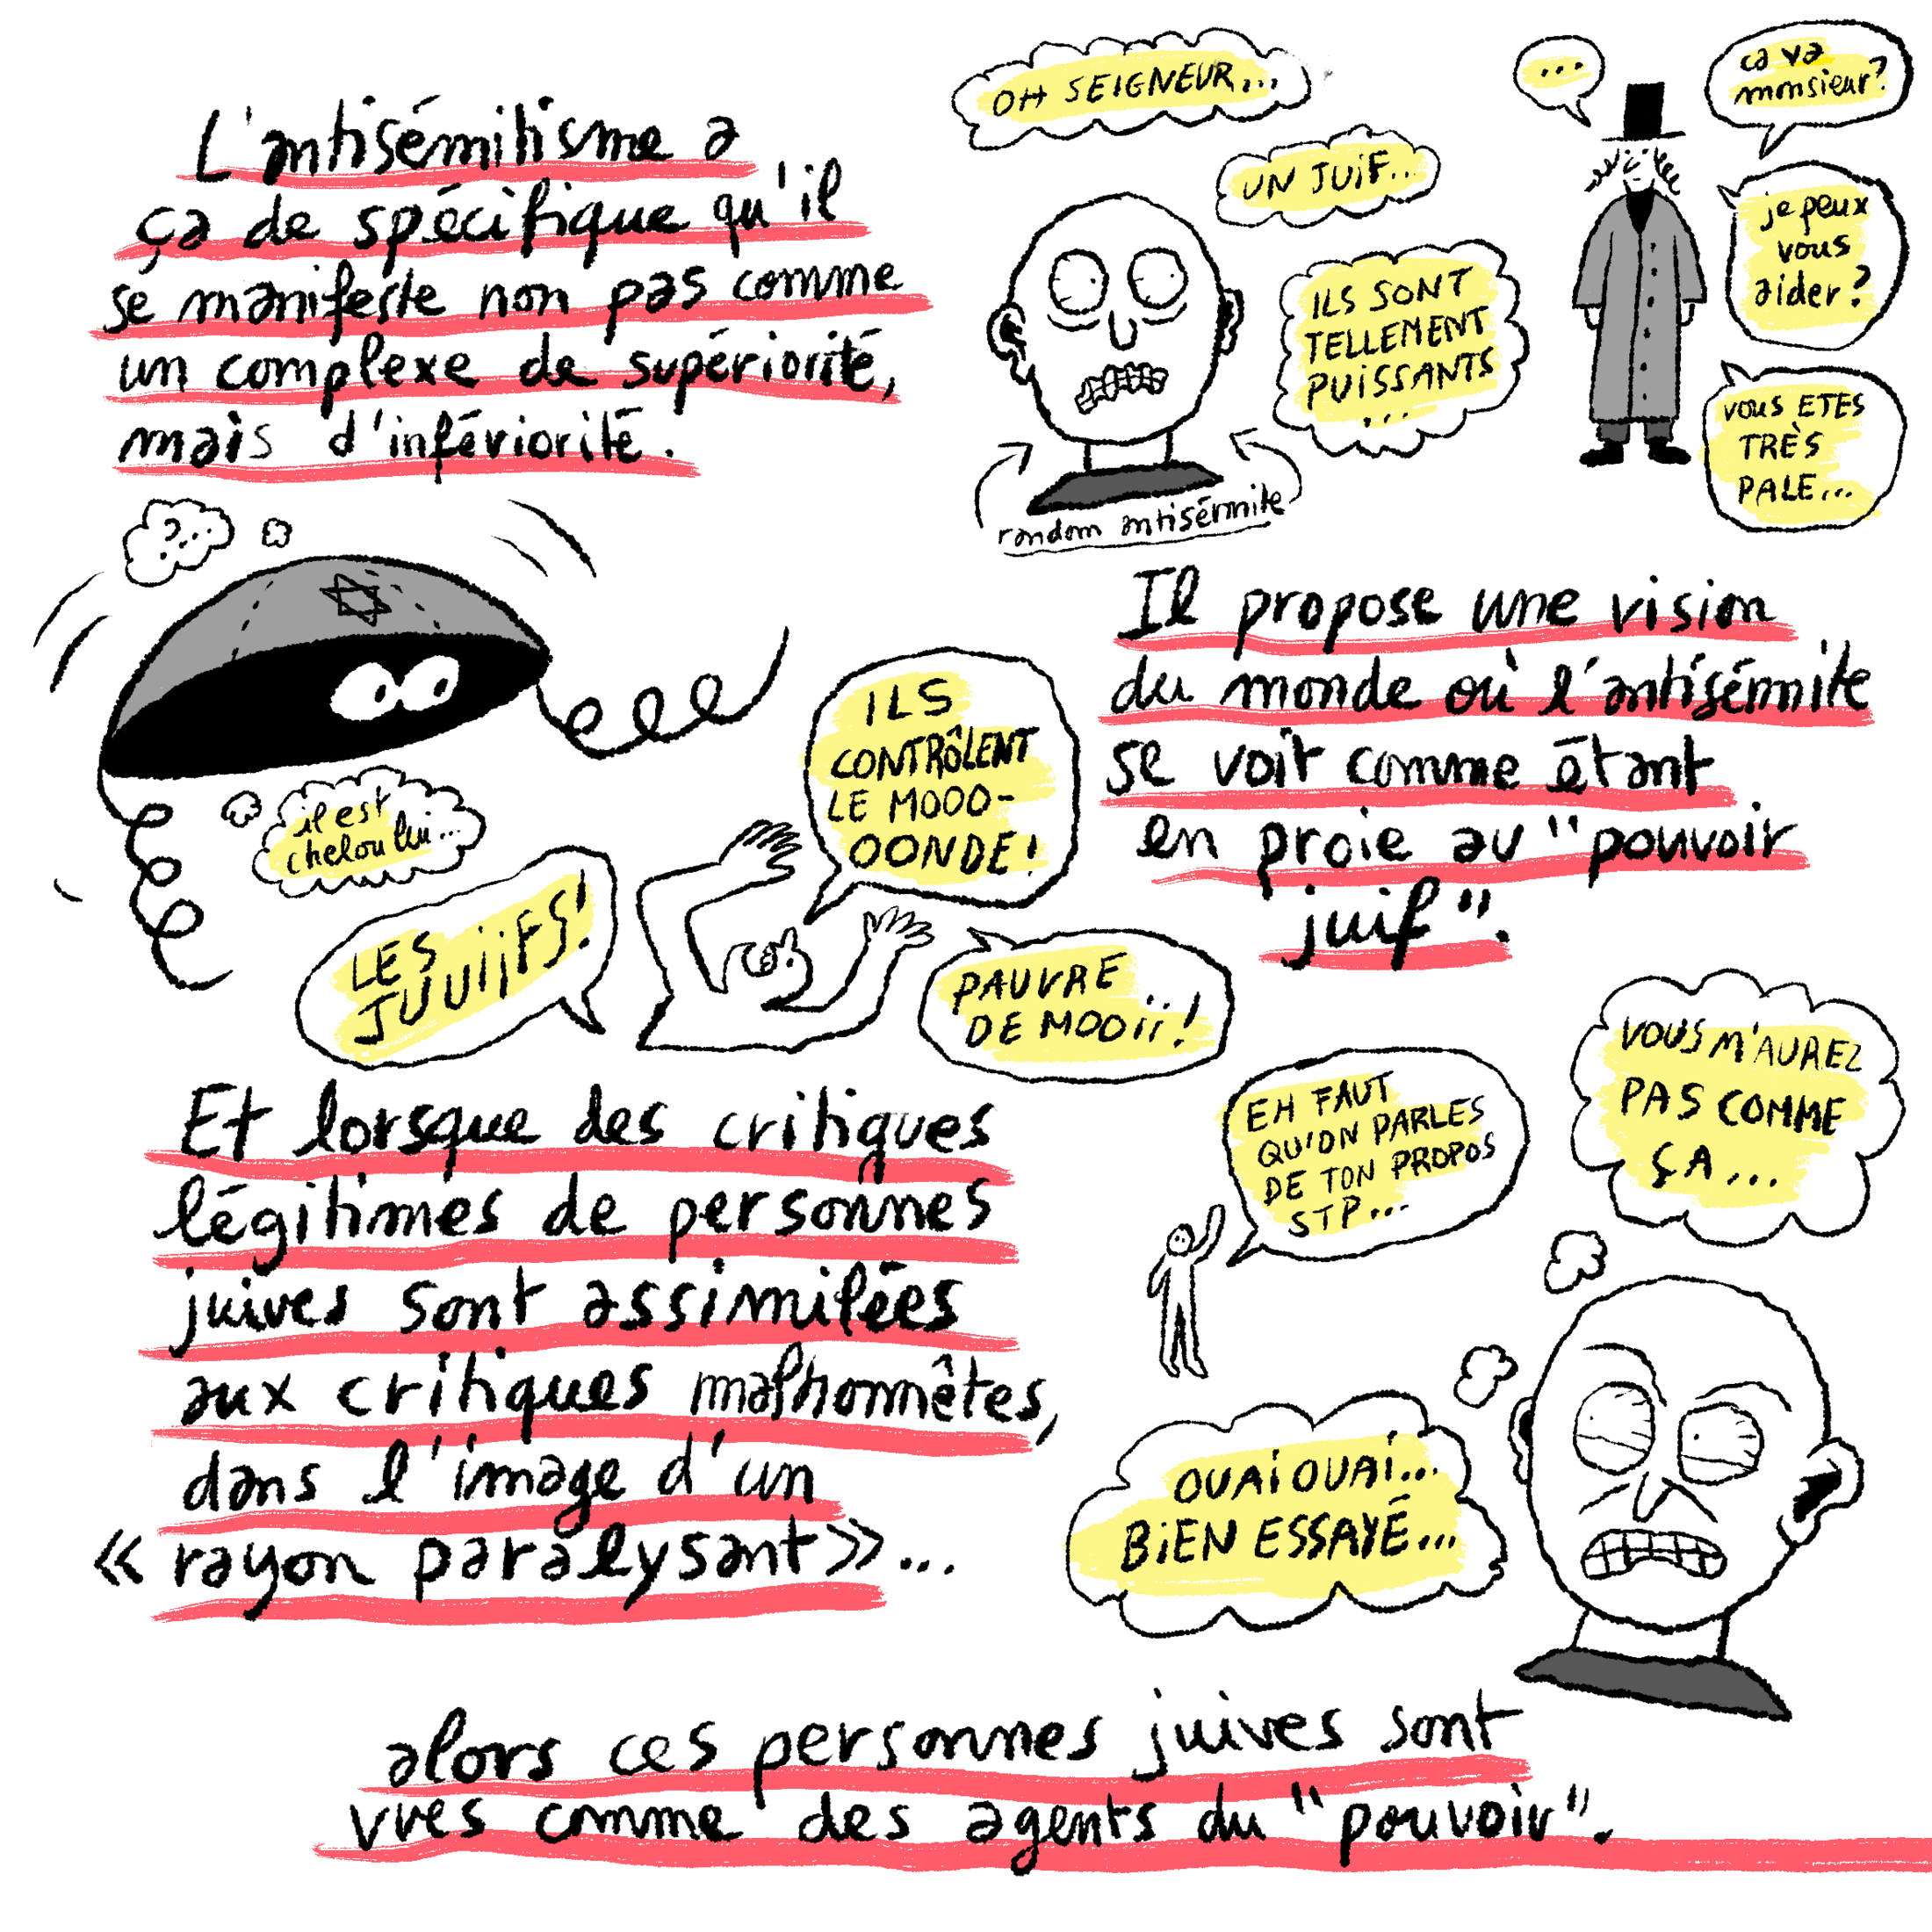 L'antisémitisme a
ça de spécifique qu'il
se manifeste non pas comme
un complexe de supériorité,
mais d'infériorité.
OH SEIGNEUR...
UN JUIF...
ILS SONT
TELLEMENT
PUISSANTS
...
random antisémite
...
ça va
monsieur?
je peux
vous
aider?
VOUS ETES
TRÈS
PALE...
?...
il est
chelou lui...
LES
JUUIIFS!
ILS
CONTRÔLENT
LE MOOO-
OONDE!
PAUVRE
DE MOOII!
Il propose une vision
du monde où l'antisémite
se voit comme étant
en proie au "pouvoir
juif".
Et lorsque des critiques
légitimes de personnes
juives sont assimilées
aux critiques malhonnêtes,
dans l'image d'un
«rayon paralysant»...
EH FAUT
QU'ON PARLES
DE TON PROPOS
STP...
VOUS M'AUREZ
PAS COMME
ÇA...
OUAIOUAI...
BIEN ESSAYÉ...
alors ces personnes juives sont
vues comme des agents du "pouvoir".